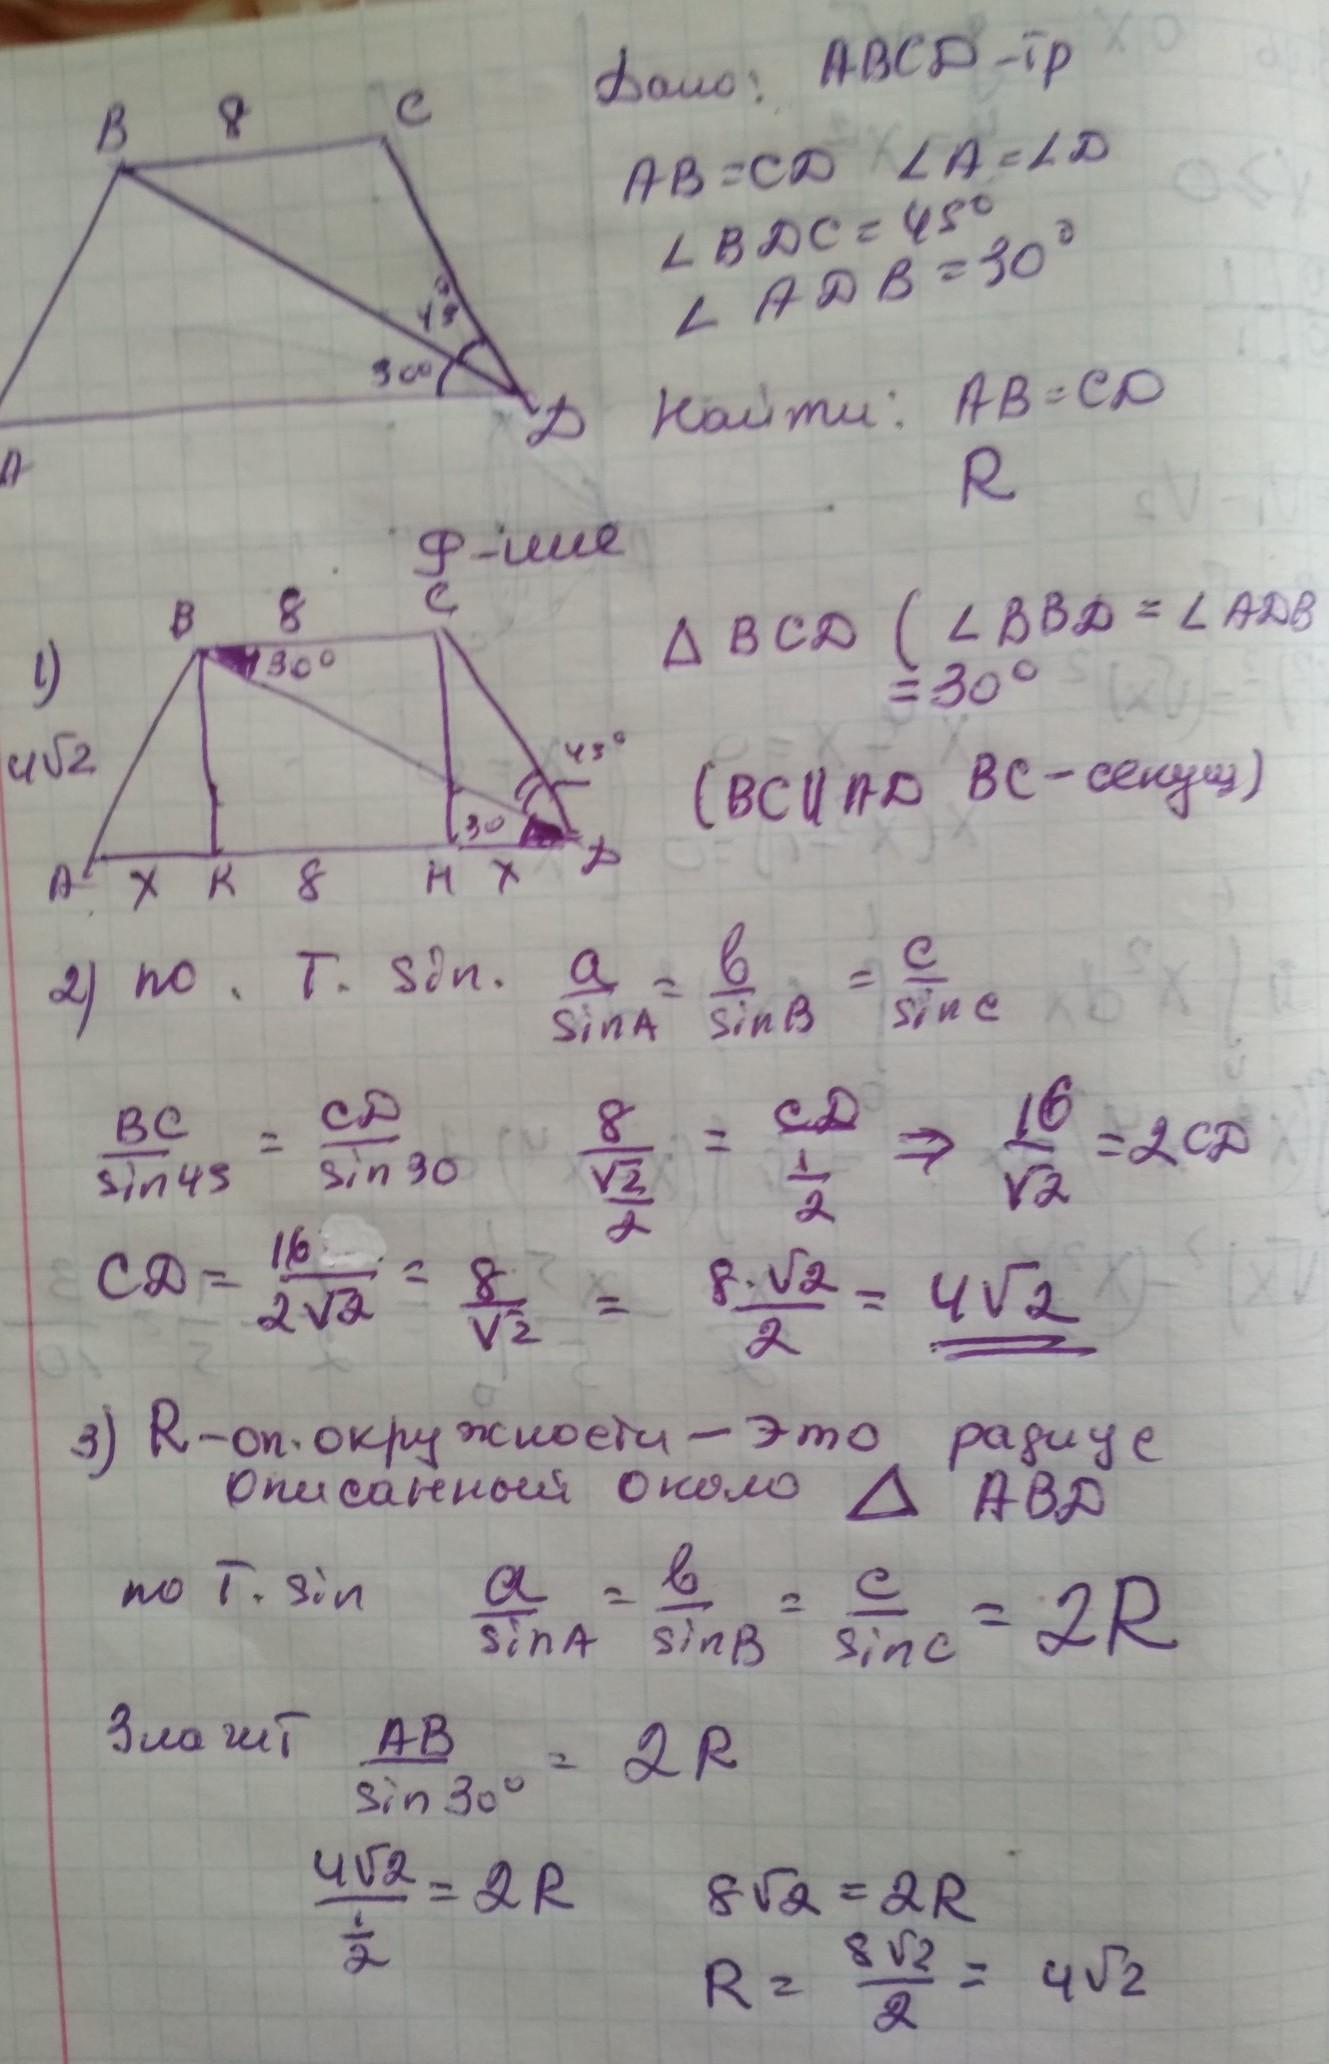 B 8 C
45°
30°
A D
Дано: ABCD-тр
AB=CD ∠A=∠D
∠BDC=45°
∠ADB=30°
Найти: AB=CD
R
Р-ние
1)
B 8 C
30°
4√2
45°
30
A x K 8 H x D
△BCD (∠BBD=∠ADB
=30°
(BC||AD BC-секущ)
2) по. Т. sin. a/sinA = b/sinB = c/sinC
BC/sin45 = CD/sin30 8/(√2/2) = CD/(1/2) ⇒ 16/√2 = 2CD
CD = 16/2√2 = 8/√2 = 8·√2/2 = 4√2
3) R-оп.окружности-это радиус
описанный около △ ABD
по Т. sin a/sinA = b/sinB = c/sinC = 2R
Значит AB/sin30° = 2R
4√2/(1/2) = 2R 8√2 = 2R
R = 8√2/2 = 4√2